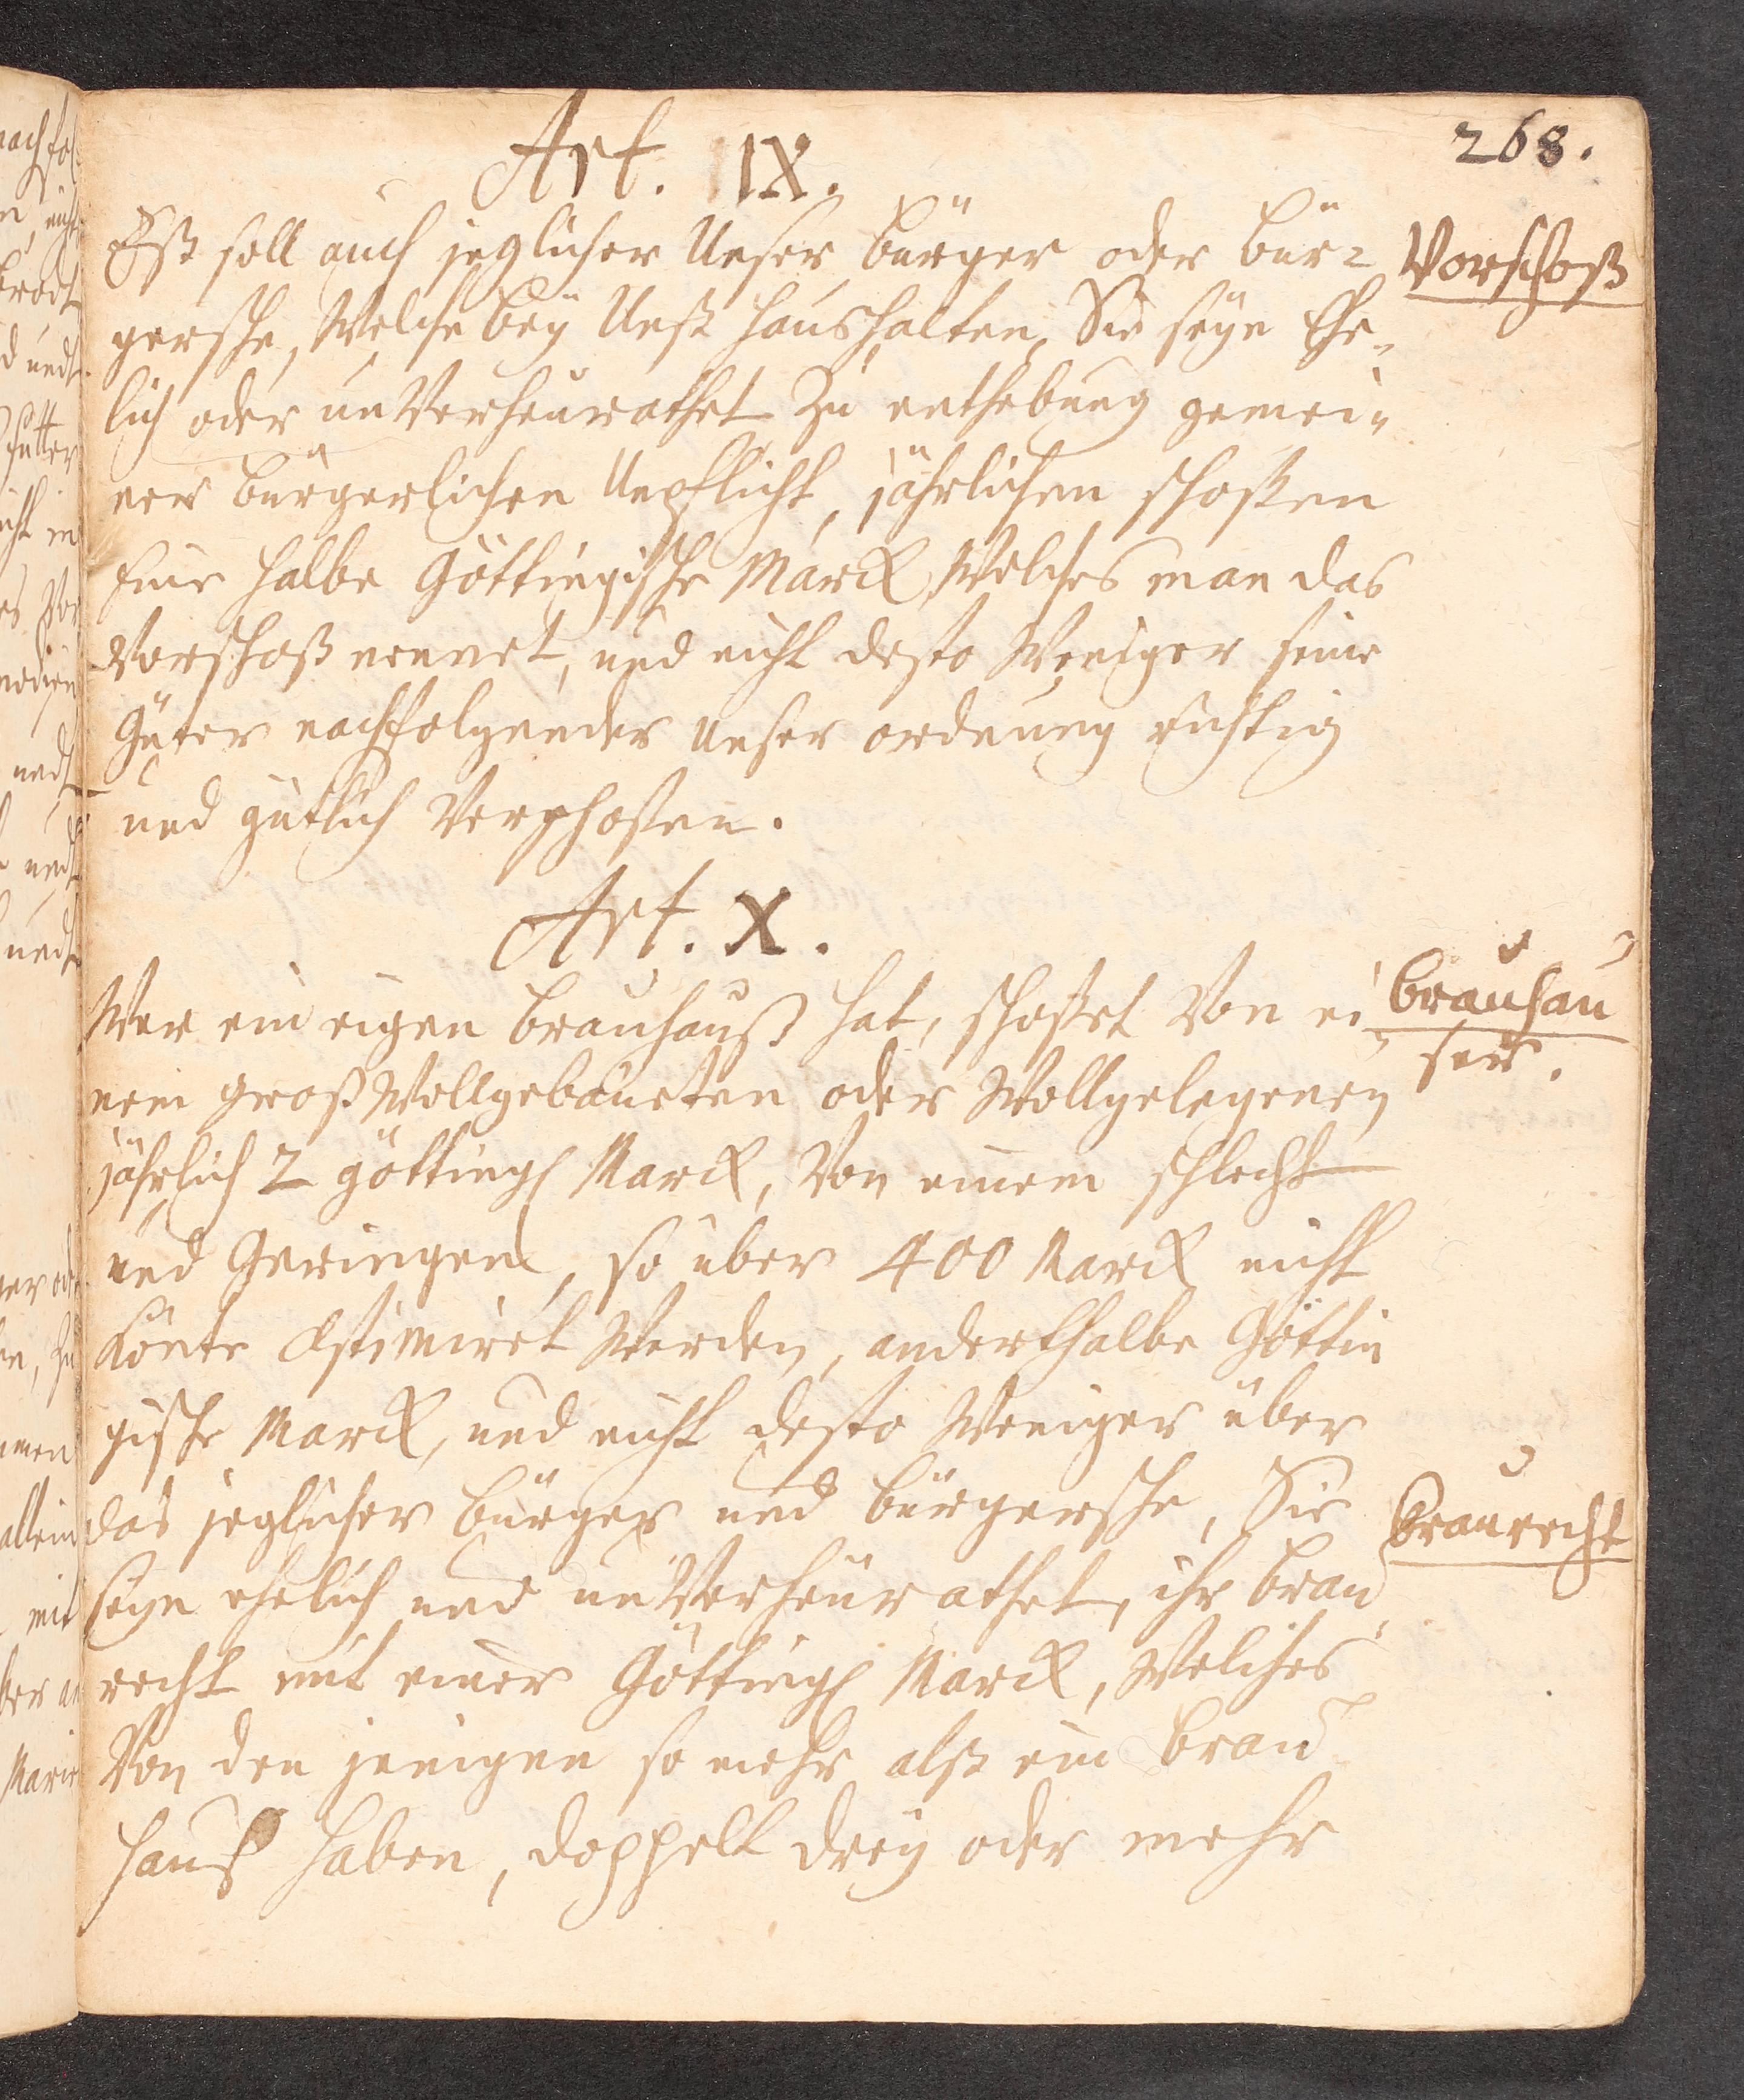 268.
Art. IX.
Eß soll auch jeglicher Unser bürger oder bür-
gersche, Welche beÿ Unß haushalten, Sie seÿn Ehe-
lich oder unVerheurathet Zu enthebung gemei-
ner bürgerlichen Unpflicht, jährlichen schoßen
Eine halbe Göttingische Marck, Welches man das
Vorschoß nennet, und nicht desto Weniger seine
Güter nachfolgender Unser ordnung richtig
und gütlich Verschoßen.
Vorschoß
Art. X.
Wer ein eigen brauhauß hat, schoßet Von ei-
nem groß Wollgebaueten oder Wollgelegenen
jährlich 2 götting Marck, Von einem schlecht
und Geringen, so über 400 Marck nicht
könte Æstimiret Werden, anderthalbe Göttin
gische Marck, und nicht desto Weniger über
das jeglicher bürger und bürgersche, Sie
seÿn ehelich und unVerheurathet, ihr brau
recht mit einer Götting Marck, Welches
Von den jenigen so mehr alß ein brau
hauß haben, doppelt dreÿ oder mehr
brauhau
ser.
braurecht